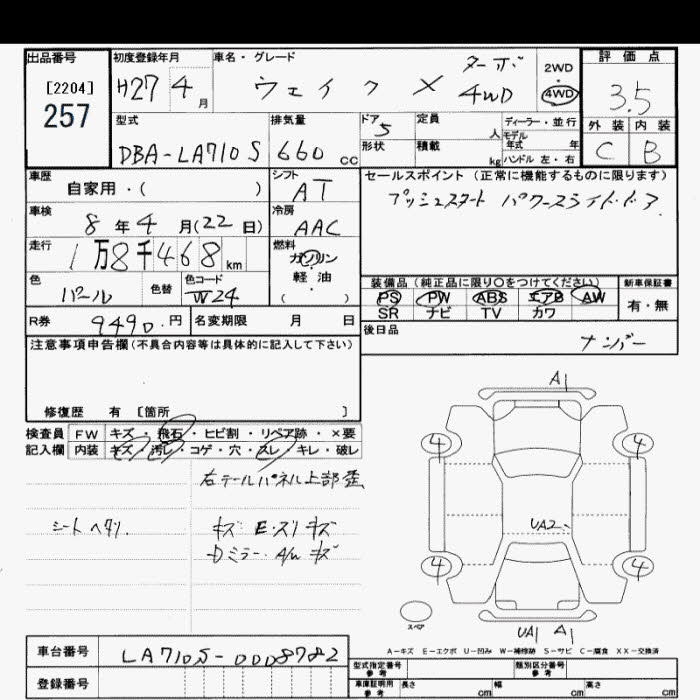 出品番号 初度登録年月 車名・グレード 評価点
[2204]
257
H27 4月 ウェイク X ターボ 4WD
2WD
・
4WD
3.5
型式 排気量 ドア 定員 ディーラー・並行
5 人 モデル年式 年
外装 内装
DBA-LA710S 660cc 形状 積載 kg ハンドル 左・右
C B
車歴 シフト セールスポイント (正常に機能するものに限ります)
自家用・( ) AT プッシュスタート パワースライドドア
車検 冷房
8年4月(22日) AAC
走行 燃料
1万8千468km ガソリン
・
軽油
( )
色 色替 色コード 装備品 (純正品に限り○をつけてください) 新車保証書
パール W24 PS PW ABS エアB AW 有・無
SR ナビ TV カワ
R券 9490.円 名変期限 月 日 後日品
ナンバー
注意事項申告欄 (不具合内容等は具体的に記入して下さい)
修復歴 有 [箇所 ]
検査員 FW キズ・飛石・ヒビ割・リペア跡・×要
記入欄 内装 キズ・汚レ・コゲ・穴・スレ・キレ・破レ
右テールパネル上部歪
シートヘタリ. キズ E・スリキズ
Dミラー・A/W キズ
A1
4 4
UA2
4 4
スペア
UA1 A1
A-キズ E-エクボ U-凹み W-補修跡 S-サビ C-腐食 XX-交換済
車台番号 LA710S-0008782
登録番号
型式指定番号 参考 類別区分番号 参考
車庫証明用 参考 長さ cm 幅 cm 高さ cm